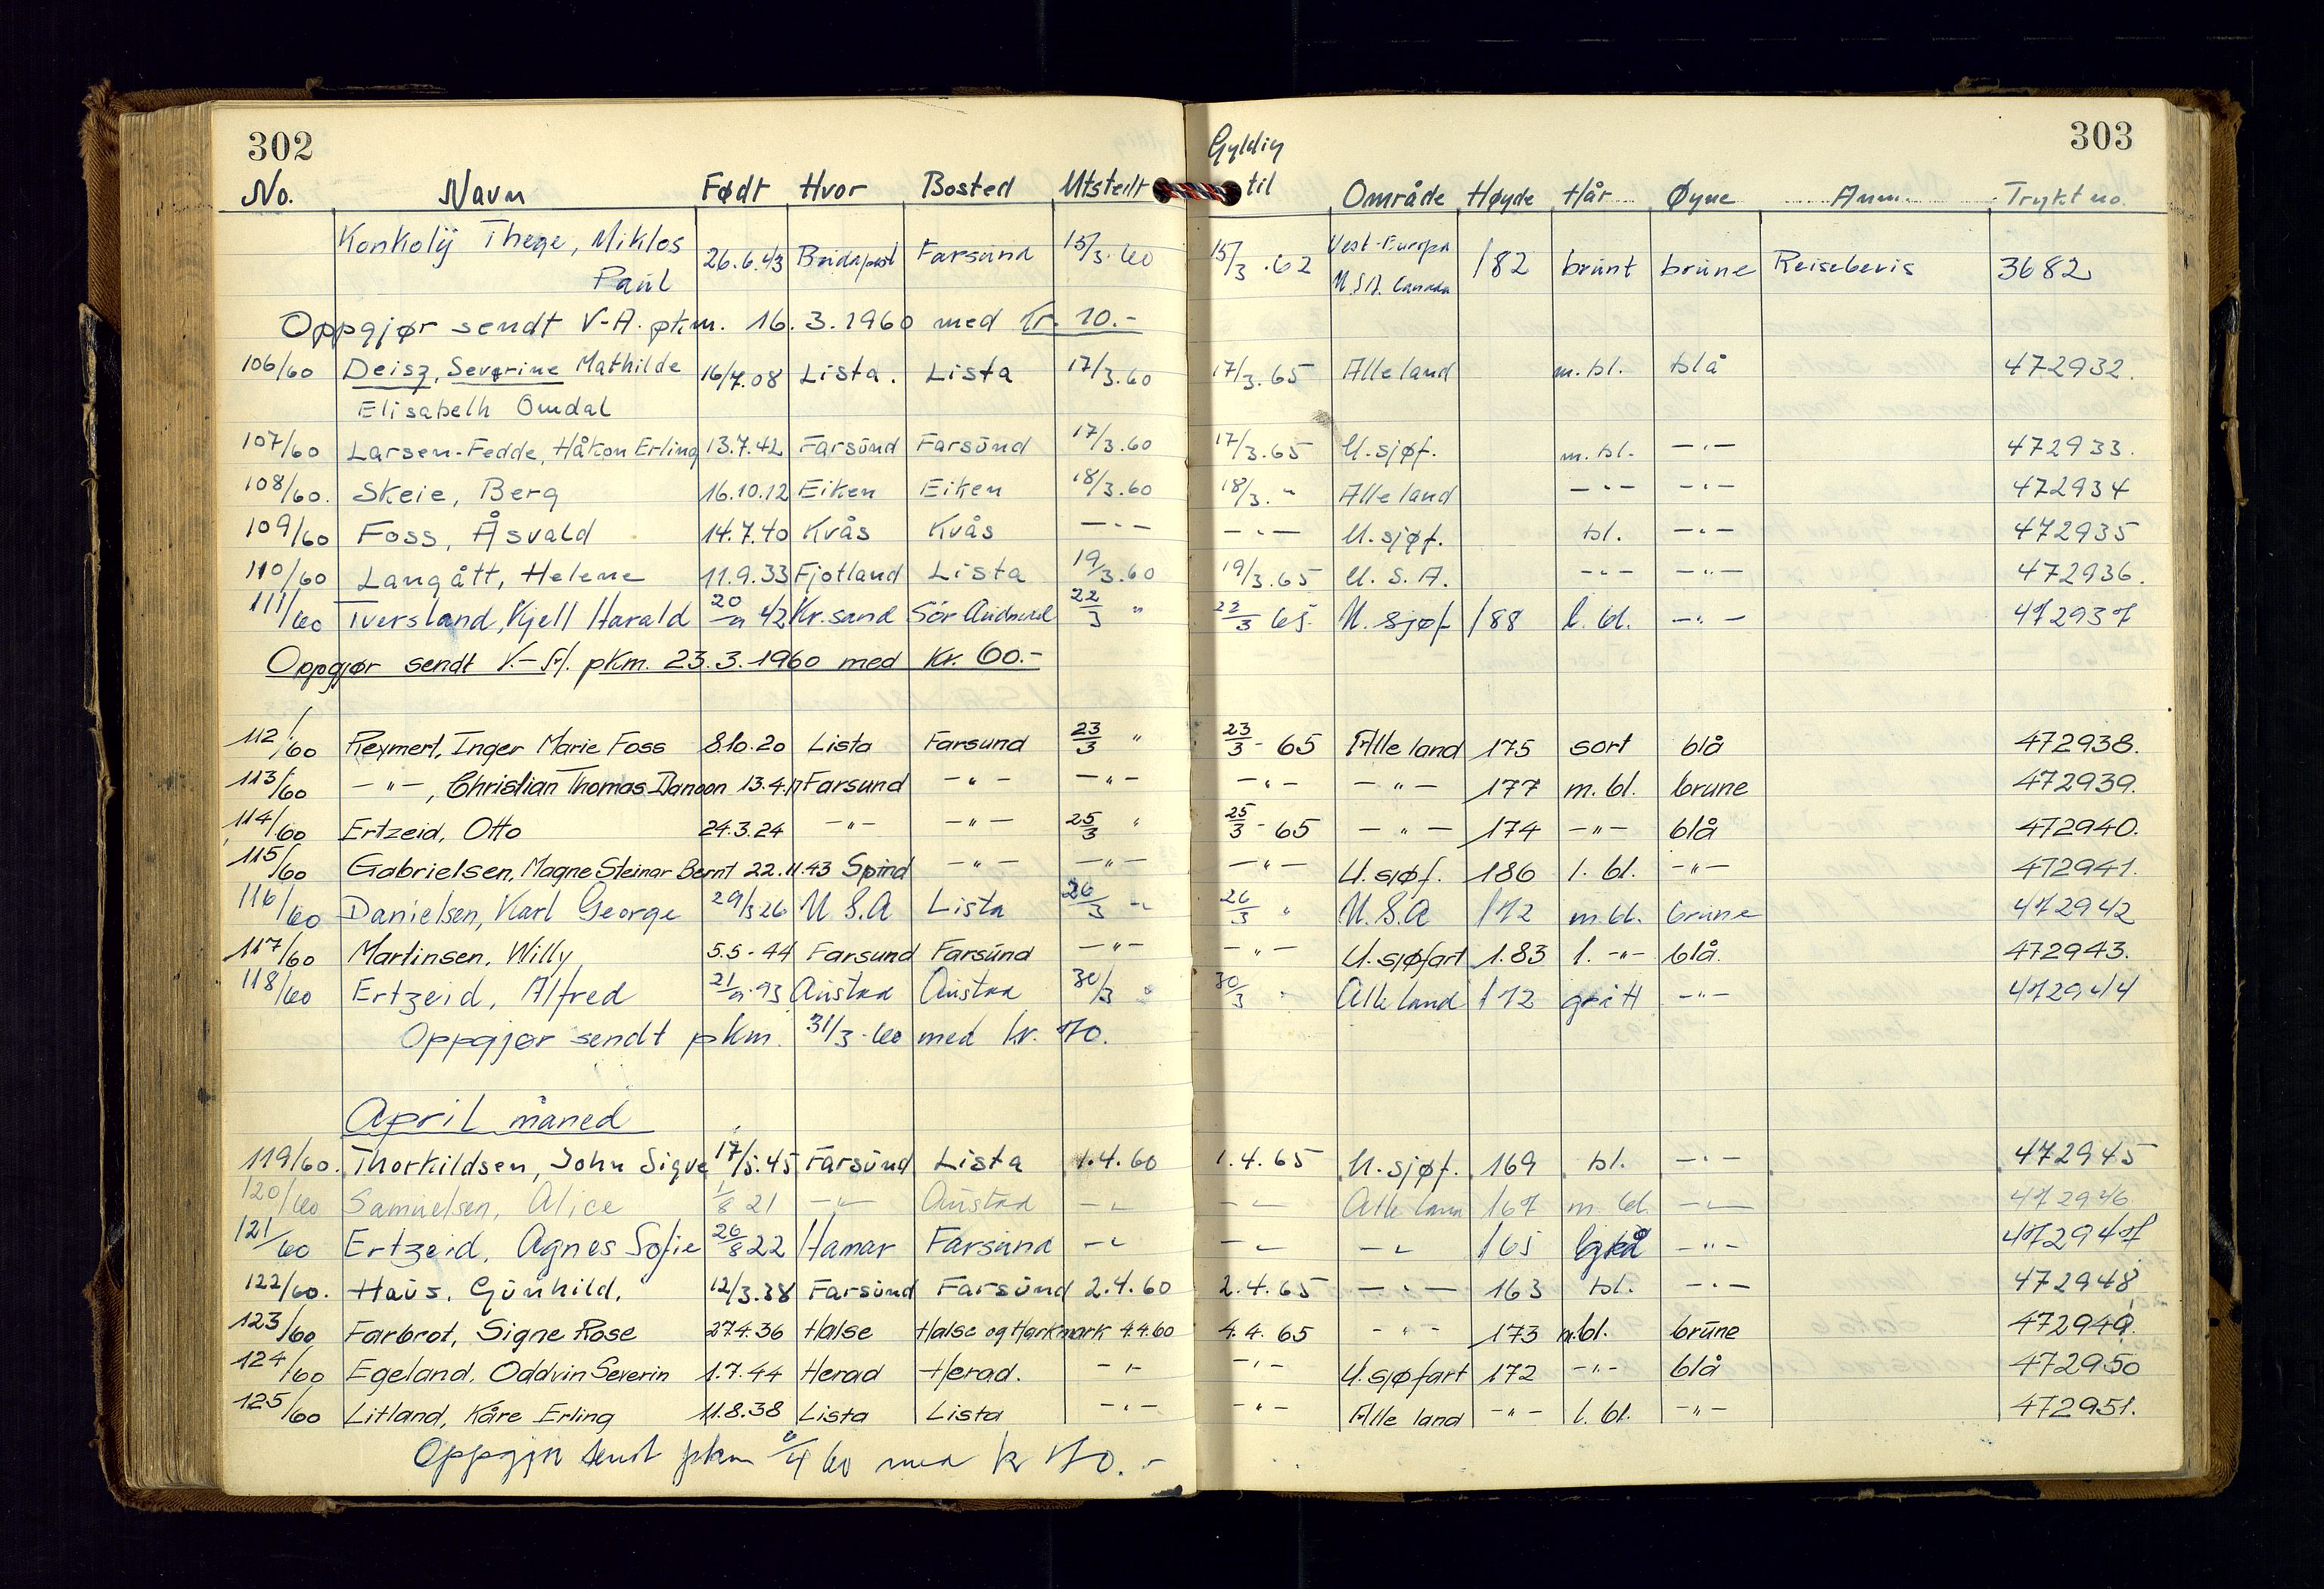 302
303
Gyldig
No. Navn Født Hvor Bosted Utstedt til Område Høyde Hår Øyne Anm. Trykt no.
Konkolÿ Thege, Miklos 26.6.43 Budapest Farsund 15/3.60 15/3.62 Vest-Europa 182 brunt brune Reisebevis 3682
Paul U.S.A. Canada
Oppgjør sendt V-A. pkm. 16.3.1960 med Kr. 10.-
106/60 Deisz, Severine Mathilde 16/7.08 Lista. Lista 17/3.60 17/3.65 Alle land m.bl. blå 472932.
Elisabeth Omdal
107/60 Larsen-Fedde, Håkon Erling 13.7.42 Farsund Farsund 17/3.60 17/3.65 U.sjøf. m.bl. -"- 472933.
108/60. Skeie, Berg 16.10.12 Eiken Eiken 18/3.60 18/3. " Alle land -"- -"- 472934
109/60 Foss, Åsvald 14.7.40 Kvås Kvås -"- -"- U.sjøf. bl. -"- 472935
110/60 Langått, Helene 11.9.33 Fjotland Lista 19/3.60 19/3.65 U.S.A. -"- -"- 472936.
111/60 Tversland, Kjell Harald 20/9 42 Kr.sand Sör Audnedal 22/3 " 22/3 65. U. sjøf 188 l. bl. -"- 472937
Oppgjør sendt V.-A. pkm. 23.3.1960 med Kr. 60.-
112/60 Reymert, Inger Marie Foss 8.10.20 Lista Farsund 23/3 " 23/3 - 65 Alle land 175 sort blå 472938.
113/60 -"-, Christian Thomas Danoon 13.4.17 Farsund -"- -"- -"- -"- 177 m.bl. brune 472939.
114/60 Ertzeid, Otto 24.3.24 -"- -"- 25/3 " 25/3 - 65 -"- 174 -"- blå 472940.
115/60 Gabrielsen, Magne Steinar Bernt 22.11.43 Spind -"- -"- -"- U.sjøf. 186 l. bl. -"- 472941.
116/60 Danielsen, Karl George 29/3 26 U.S.A Lista 26/3 " 26/3 " U.S.A 172 m.bl. brune 472942
117/60 Martinsen, Willy 5.5-44 Farsund Farsund -"- -"- U.sjøfart 1.83 l. -"- blå. 472943.
118/60 Ertzeid, Alfred 21/9.93 Austad Austad 30/3 " 30/3 " Alle land 172 grått -"- 472944
Oppgjør sendt pkm. 31/3-60 med kr. 70.
April måned
119/60. Thorkildsen, John Sigve 17/5.45 Farsund Lista 1.4.60 1.4.65 U.sjøf. 169 bl. -"- 472945
120/60 Samuelsen, Alice 1/8 21 -"- Austad -"- -"- Alle land 167 m. bl. -"- 472946
121/60 Ertzeid, Agnes Sofie 26/8 22 Hamar Farsund -"- -"- -"- 165 -"- 472947
122/60. Haus. Gunhild. 12/3.38 Farsund Farsund 2.4.60 2.4.65 -"- 163 bl. -"- 472948
123/60 Farbrot, Signe Rose 27.4.36 Halse Halse og Harkmark 4.4.60 4.4.65 -"- 173 m.bl. brune 472949.
124/60 Egeland, Oddvin Severin 1.7.44 Herad Herad. -"- -"- U.sjøfart 172 -"- blå 472950
125/60 Litland, Kåre Erling 11.8.38 Lista Lista -"- -"- Alle land -"- l. bl. -"- 472951.
Oppgjør sendt pkm /4 60 med kr 70.-